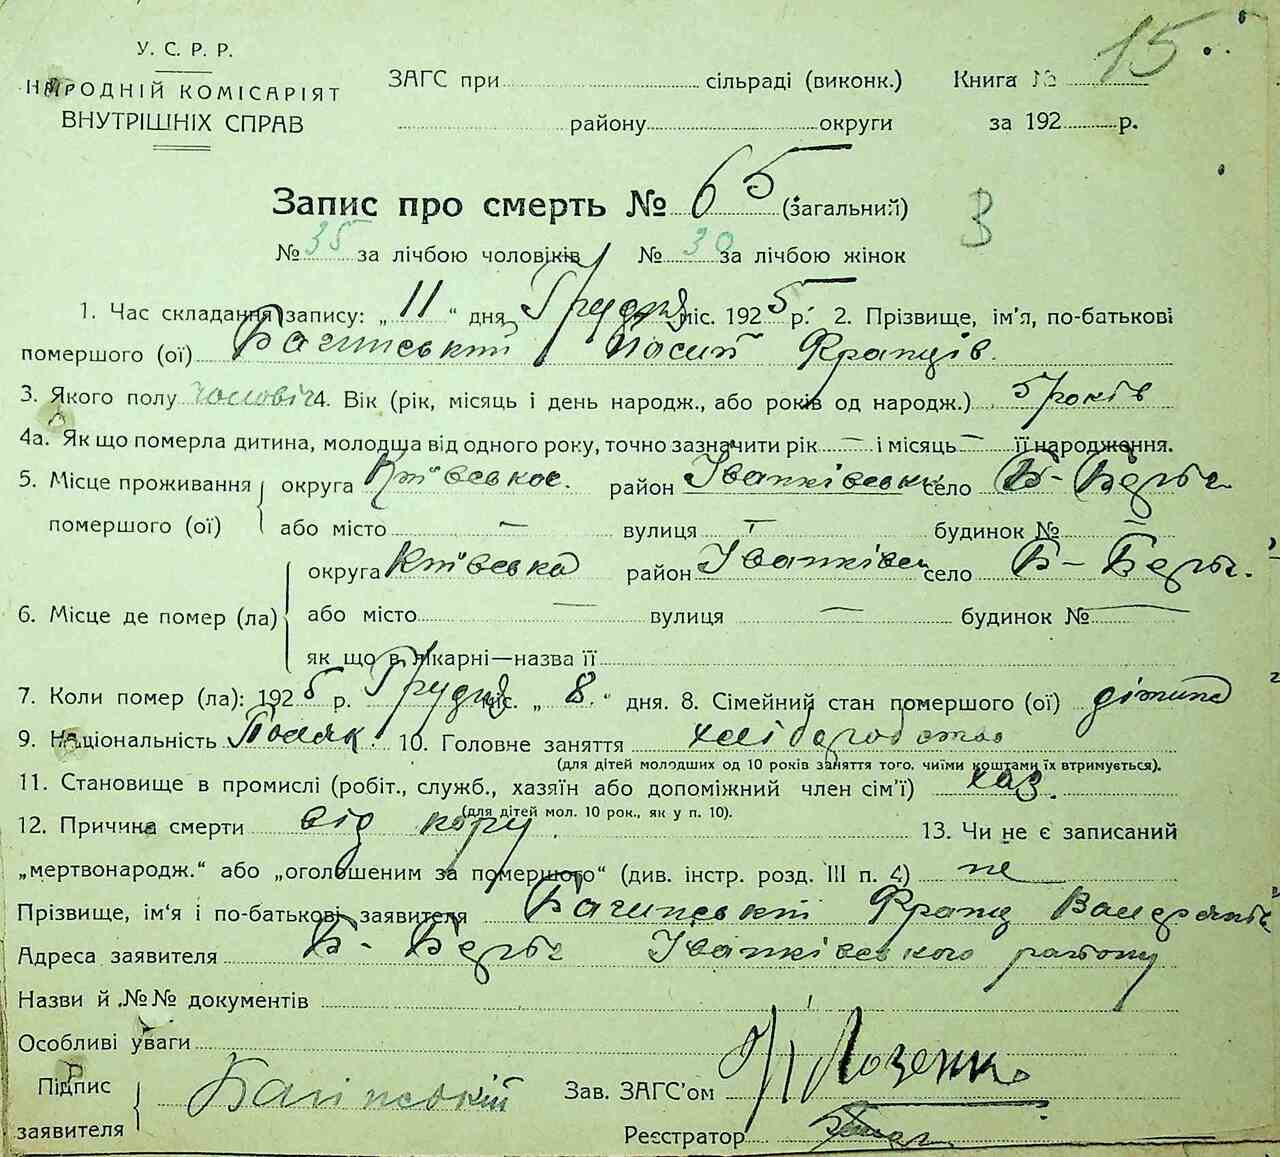 15
У. С. Р. Р.
НАРОДНІЙ КОМІСАРІЯТ
ВНУТРІШНІХ СПРАВ
ЗАГС при сільраді (виконк.) Книга №
району округи за 192 р.
Запис про смерть № 65 (загальний)
З
№ 35 за лічбою чоловіків № 30 за лічбою жінок
1. Час складання запису: „ 11 “ дня Грудня міс. 1925 р. 2. Прізвище, ім’я, по-батькові
помершого (ої) Багинський Йосип Франців.
3. Якого полу чоловіч 4. Вік (рік, місяць і день народж., або років од народж.) 5 років
4а. Як що померла дитина, молодша від одного року, точно зазначити рік — і місяць — її народження.
5. Місце проживання округа Київської район Іванківськ село Б-
помершого (ої) або місто — вулиця — будинок № —
округа Київська район Іванківськ село Б-
6. Місце де помер (ла) або місто — вулиця — будинок № —
як що в лікарні—назва її
7. Коли помер (ла): 1925 р. Грудня міс. „ 8. “ дня. 8. Сімейний стан помершого (ої) дитина
9. Національність Поляк. 10. Головне заняття хліборобство
(для дітей молодших од 10 років заняття того, чиїми коштами їх втримується).
11. Становище в промислі (робіт., служб., хазяїн або допоміжний член сім’ї) хаз.
(для дітей мол. 10 рок., як у п. 10).
12. Причина смерти від кору. 13. Чи не є записаний
„мертвонародж.“ або „оголошеним за помершого“ (див. інстр. розд. III п. 4) не
Прізвище, ім’я і по-батькові заявителя Багинський Франц
Адреса заявителя Б- Іванківського району
Назви й №№ документів
Особливі уваги
Підпис
заявителя
Зав. ЗАГС’ом
Реєстратор